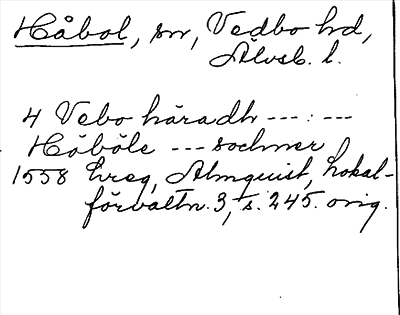 Håbol, sn, Vedbo hd,
Älvsb. l.
4 Vebo häradh --- : ---
Håböle --- sochner
1558 hreg, Almquist, Lokal-
förvaltn. 3, s. 245. orig.